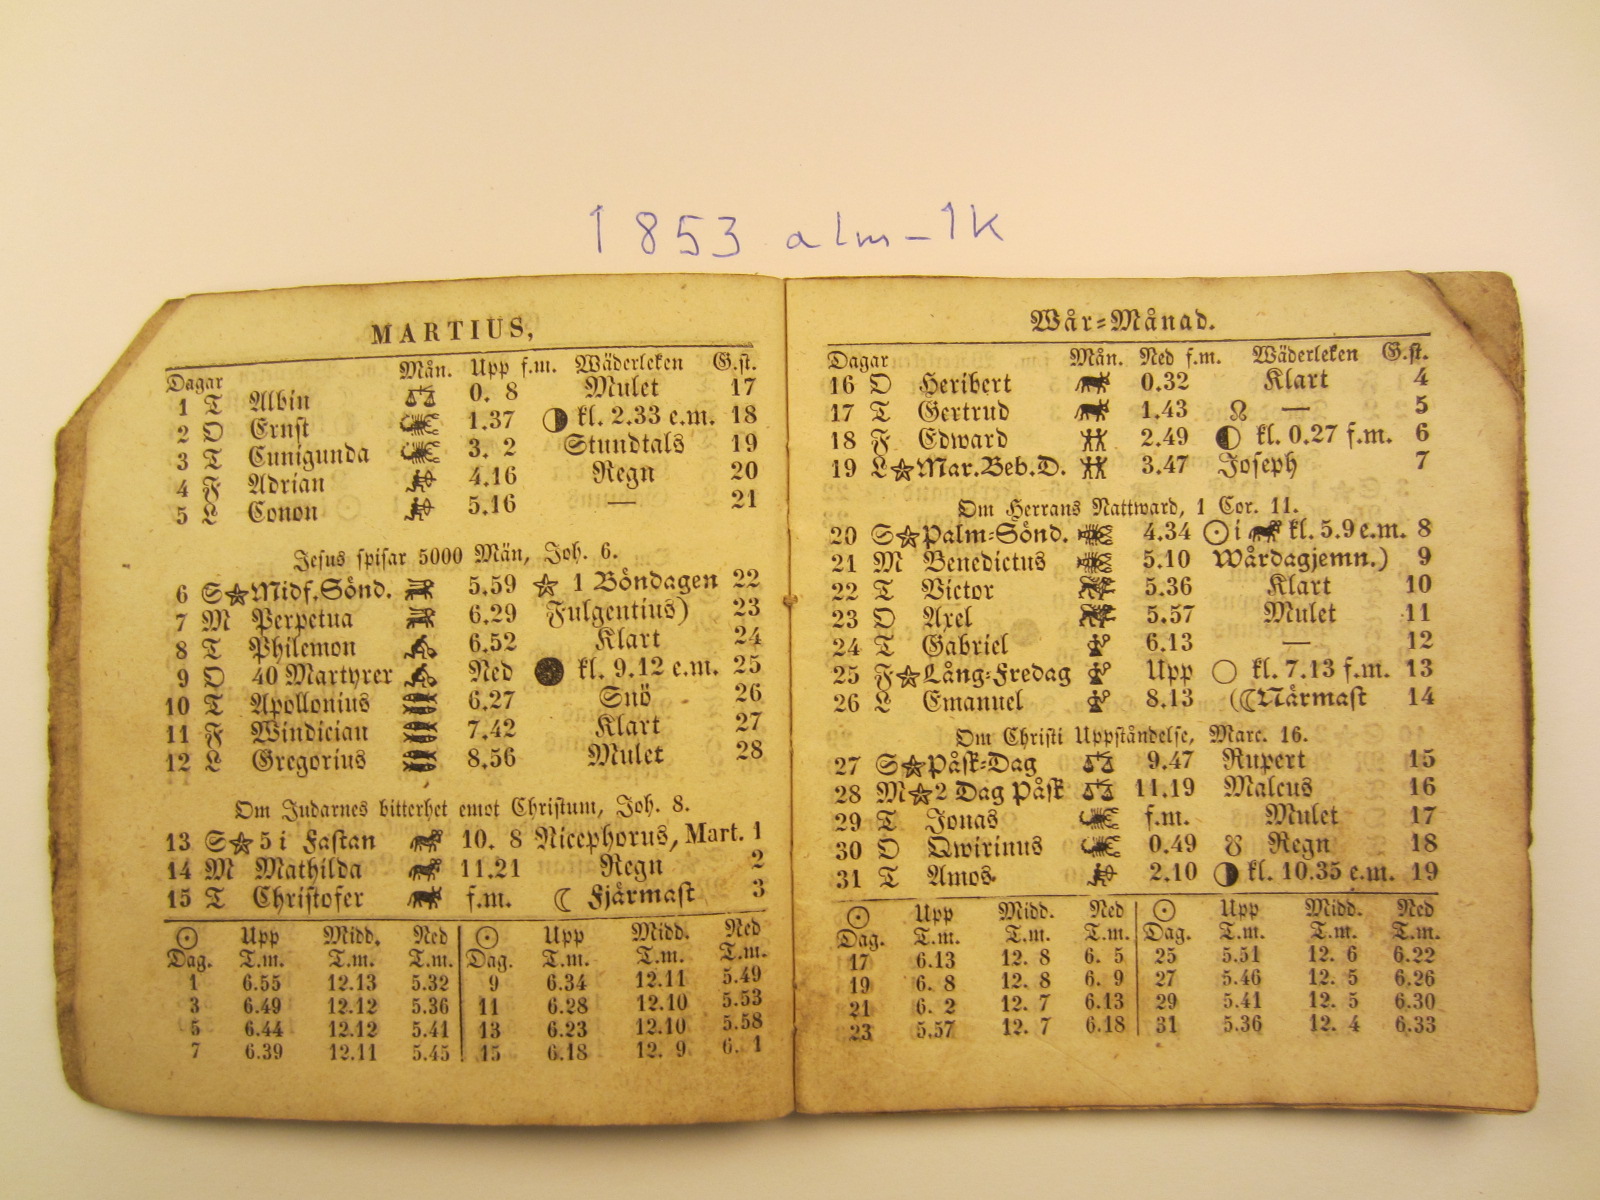 1853 alm-1k
MARTIUS,
Dagar Mån. Upp f.m. Wäderleken G.st.
1 T Albin 0. 8 Mulet 17
2 O Ernst 1.37 kl. 2.33 e.m. 18
3 T Cunigunda 3. 2 Stundtals 19
4 F Adrian 4.16 Regn 20
5 L Conon 5.16 — 21
Jesus spisar 5000 Män, Joh. 6.
6 S Midf.Sönd. 5.59 1 Böndagen 22
7 M Perpetua 6.29 Fulgentius) 23
8 T Philemon 6.52 Klart 24
9 O 40 Martyrer Ned kl. 9.12 e.m. 25
10 T Apollonius 6.27 Snö 26
11 F Windician 7.42 Klart 27
12 L Gregorius 8.56 Mulet 28
Om Judarnes bitterhet emot Christum, Joh. 8.
13 S 5 i Fastan 10. 8 Nicephorus, Mart. 1
14 M Mathilda 11.21 Regn 2
15 T Christofer f.m. ☾ Fjärmast 3
☉ Upp Midd. Ned ☉ Upp Midd. Ned
Dag. T.m. T.m. T.m. Dag. T.m. T.m. T.m.
1 6.55 12.13 5.32 9 6.34 12.11 5.49
3 6.49 12.12 5.36 11 6.28 12.10 5.53
5 6.44 12.12 5.41 13 6.23 12.10 5.58
7 6.39 12.11 5.45 15 6.18 12. 9 6. 1
Wår-Månad.
Dagar Mån. Ned f.m. Wäderleken G.st.
16 O Heribert 0.32 Klart 4
17 T Gertrud 1.43 ☊ — 5
18 F Edward 2.49 kl. 0.27 f.m. 6
19 L Mar.Beb.D. 3.47 Joseph 7
Om Herrans Nattward, 1 Cor. 11.
20 S Palm-Sönd. 4.34 ☉ i kl. 5.9 e.m. 8
21 M Benedictus 5.10 Wårdagjemn.) 9
22 T Victor 5.36 Klart 10
23 O Axel 5.57 Mulet 11
24 T Gabriel 6.13 — 12
25 F Lång-Fredag Upp kl. 7.13 f.m. 13
26 L Emanuel 8.13 (☾Närmast 14
Om Christi Uppståndelse, Marc. 16.
27 S Påsk-Dag 9.47 Rupert 15
28 M 2 Dag Påsk 11.19 Malcus 16
29 T Jonas f.m. Mulet 17
30 O Qwirinus 0.49 ☋ Regn 18
31 T Amos 2.10 kl. 10.35 e.m. 19
☉ Upp Midd. Ned ☉ Upp Midd. Ned
Dag. T.m. T.m. T.m. Dag. T.m. T.m. T.m.
17 6.13 12. 8 6. 5 25 5.51 12. 6 6.22
19 6. 8 12. 8 6. 9 27 5.46 12. 5 6.26
21 6. 2 12. 7 6.13 29 5.41 12. 5 6.30
23 5.57 12. 7 6.18 31 5.36 12. 4 6.33